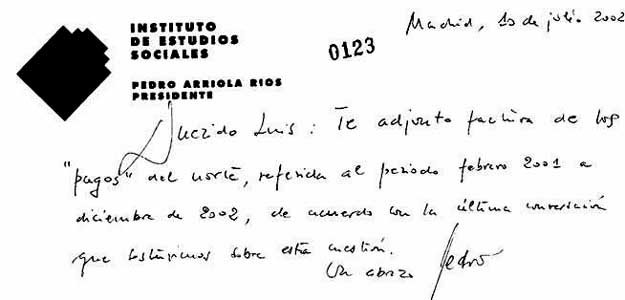 INSTITUTO
DE ESTUDIOS
SOCIALES
PEDRO ARRIOLA RIOS
PRESIDENTE
0123
Madrid, 10 de julio 2002
Querido Luis: Te adjunto factura de los
"pagos" del norte, referida al periodo febrero 2001 a
diciembre de 2002, de acuerdo con la última conversación
que sostuvimos sobre esta cuestión.
Un abrazo Pedro